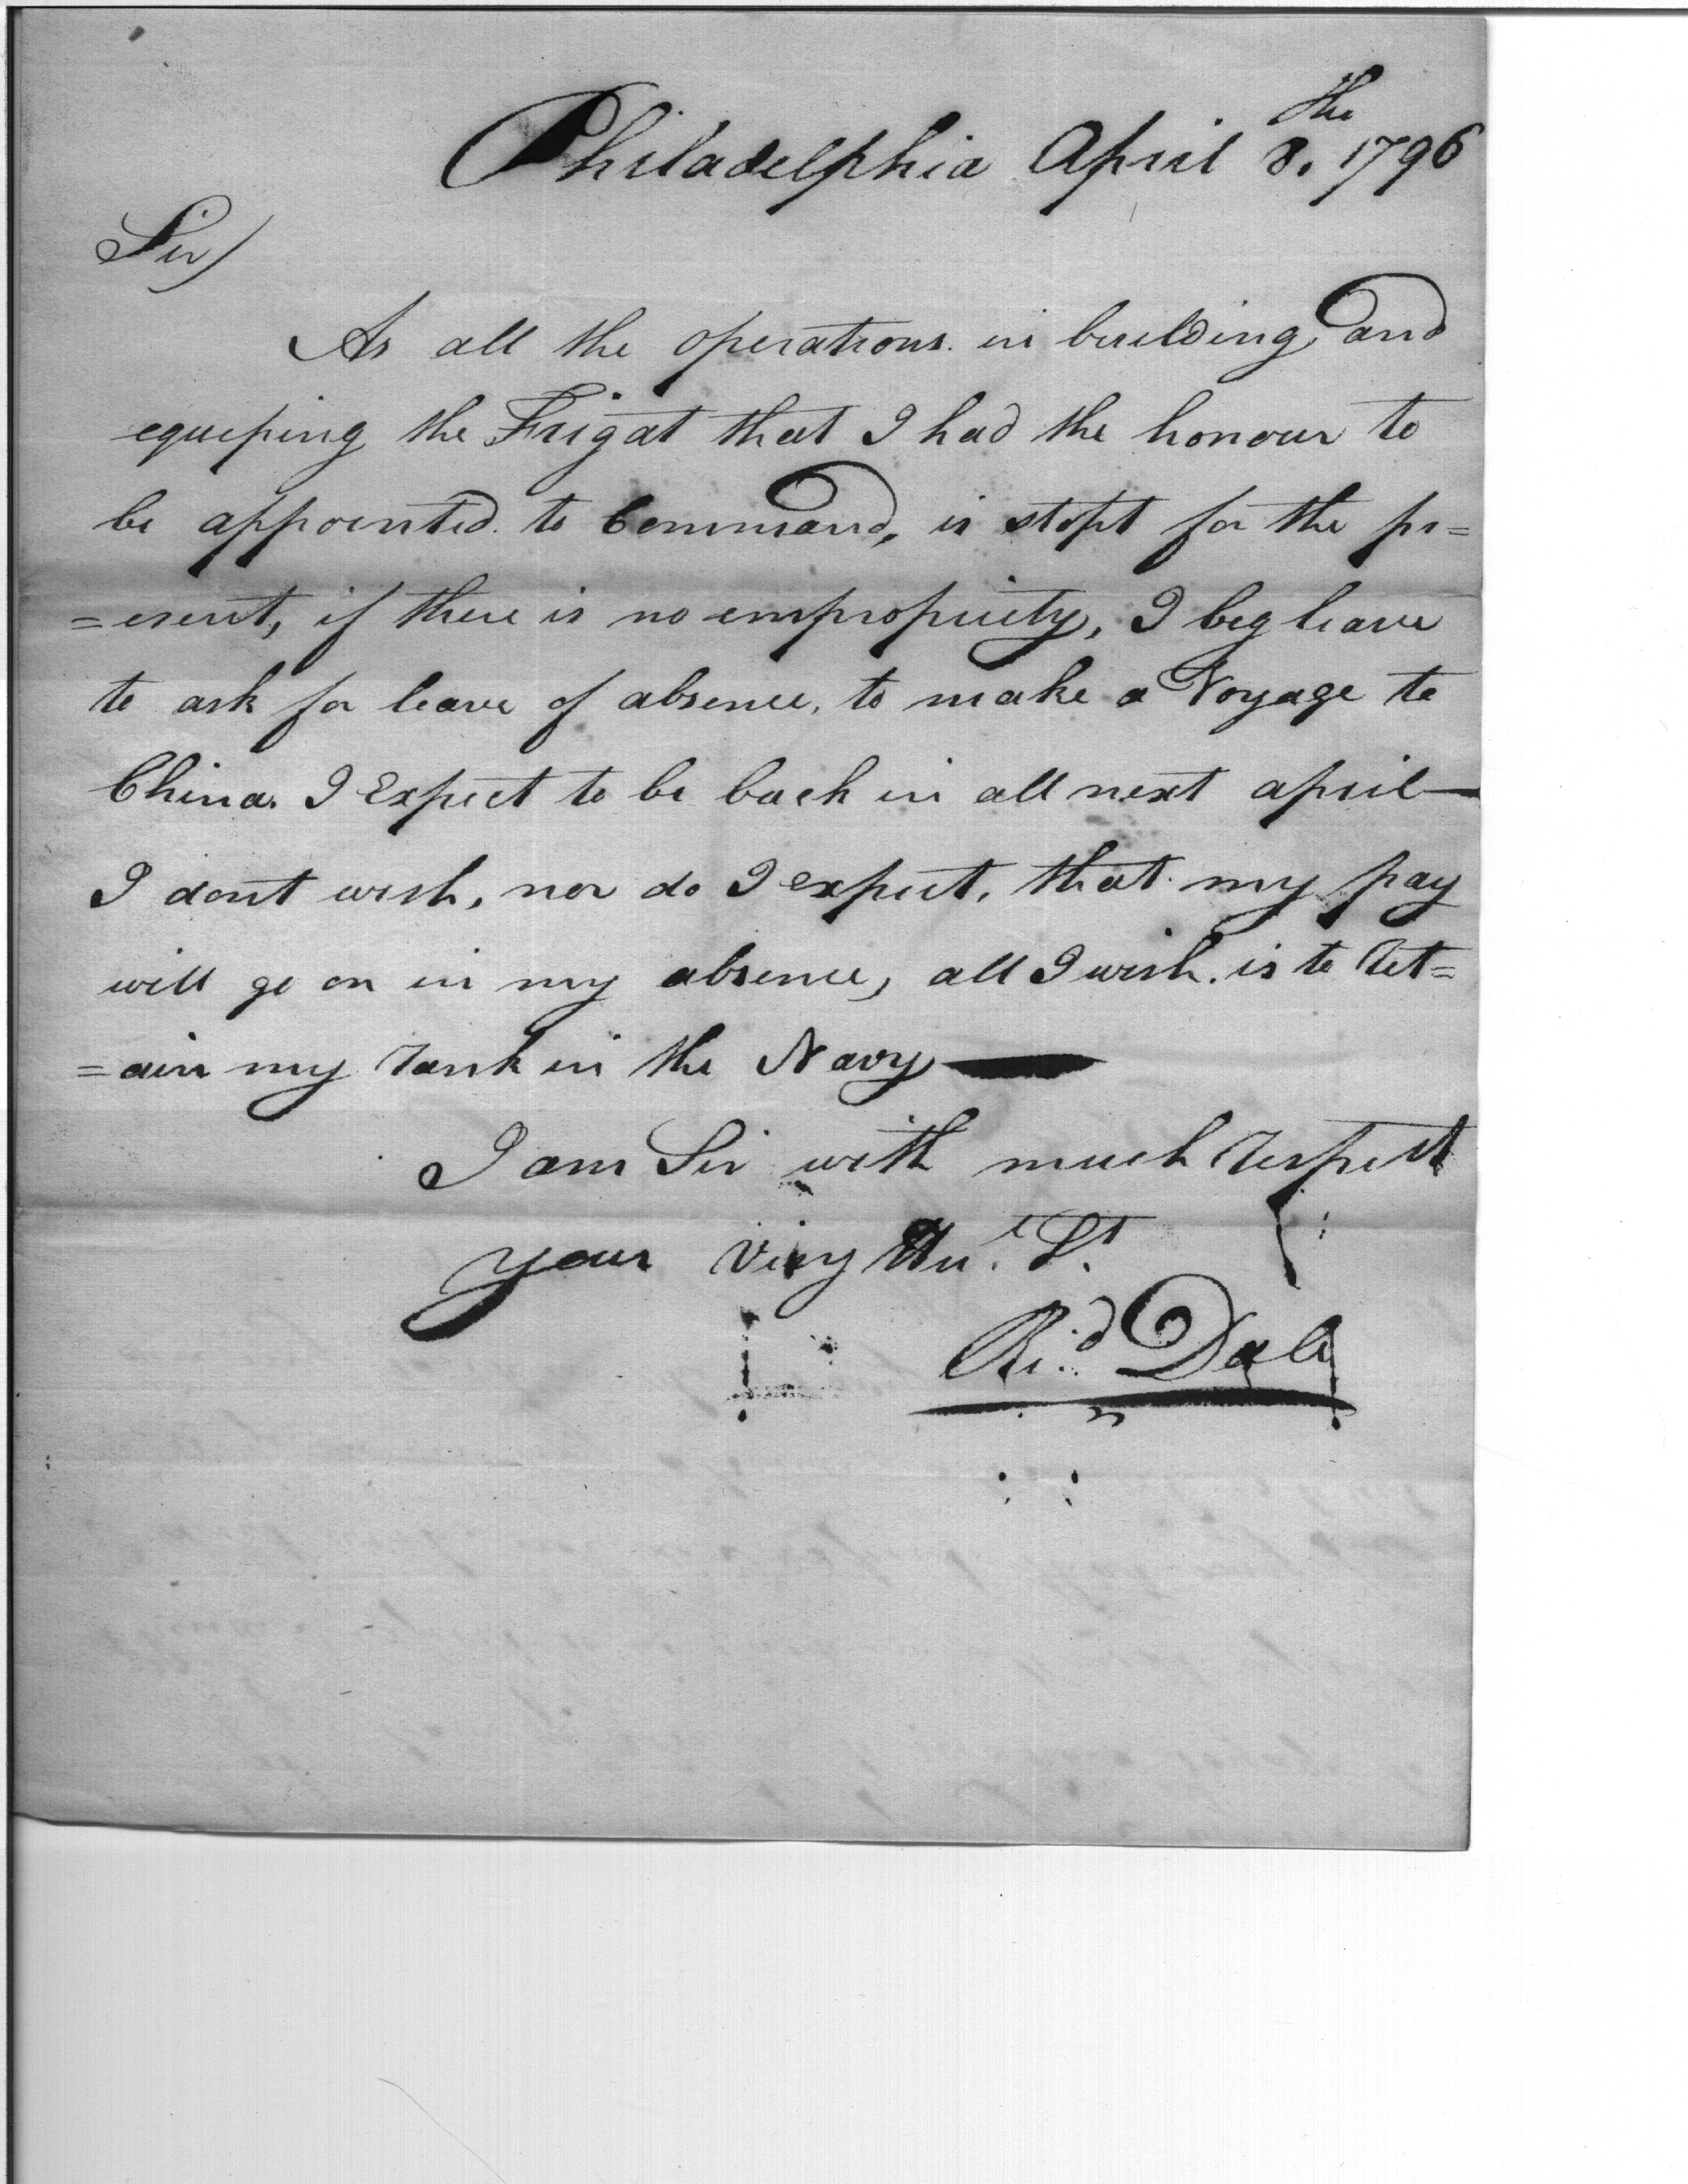 Philadelphia April 8.the 1796
Sir/
As all the operations in building, and
equeping the Frigat that I had the honour to
be appointed to Command, is stopt for the pr=
=esent, if there is no empropriety, I beg leave
to ask for leave of absence, to make a Voyage to
China. I Expect to be back in all next april—
I dont wish, nor do I expect, that my pay
will go on in my absence, all I wish is to Ret=
=ain my Rank in the Navy—
I am Sir with much Respect
your very Hue. St.
Rid. Dale